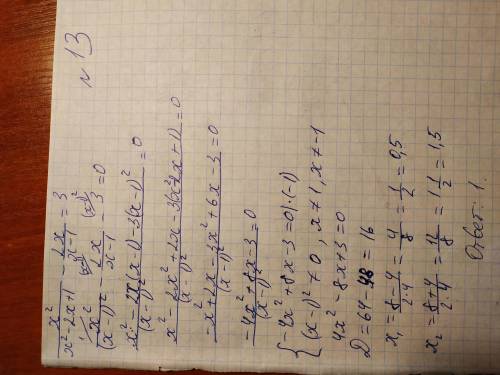 N 13
x²/(x²-2x+1) - 2x/(x-1) = 3
x²/(x-1)² - 2x/(x-1) - 3 = 0
(x² - 2x(x-1) - 3(x-1)²)/(x-1)² = 0
(x² - 2x² + 2x - 3(x² - 2x + 1))/(x-1)² = 0
(-x + 2x - 3x² + 6x - 3)/(x-1)² = 0
(-4x² + 8x - 3)/(x-1)² = 0
{ -4x² + 8x - 3 = 0 | · (-1)
(x-1)² ≠ 0, x ≠ 1, x ≠ -1
4x² - 8x + 3 = 0
D = 64 - 48 = 16
x₁ = (8-4)/(2·4) = 4/8 = 1/2 = 0,5
x₂ = (8+4)/(2·4) = 12/8 = 1 1/2 = 1,5
Ответ: 1.